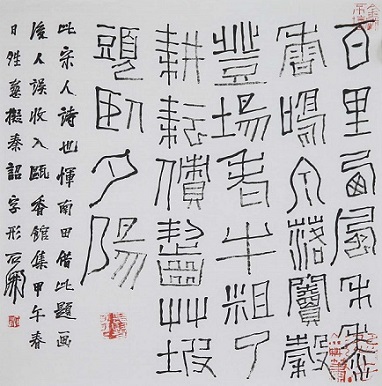 百里西風禾黍
香鳴泉落竇穀
登場老牛粗了
耕耘債齧草坡
頭臥夕陽
此宋人詩也惲南田借此題畫
後人誤收入甌香館集甲午春
日擬秦詔字形